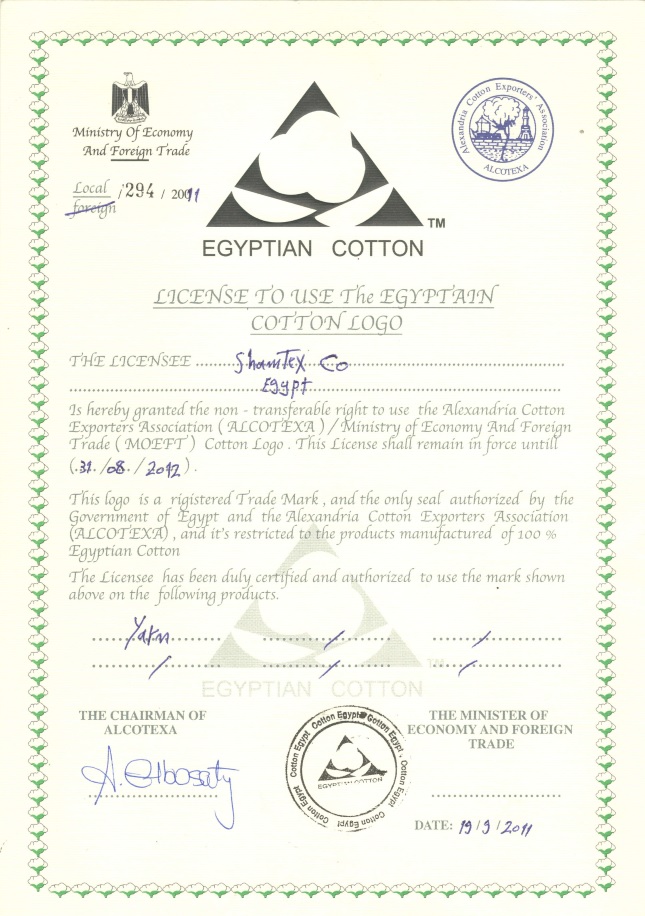 Ministry Of Economy
And Foreign Trade
Local / 294 / 2011
foreign
Alexandria Cotton Exporters' Association
ALCOTEXA
TM
EGYPTIAN COTTON
LICENSE TO USE The EGYPTAIN
COTTON LOGO
THE LICENSEE ShamTex Co
Egypt
Is hereby granted the non - transferable right to use the Alexandria Cotton
Exporters Association ( ALCOTEXA ) / Ministry of Economy And Foreign
Trade ( MOEFT ) Cotton Logo . This License shall remain in force untill
(.31. /08. / 2012 ) .
This logo is a rigistered Trade Mark , and the only seal authorized by the
Government of Egypt and the Alexandria Cotton Exporters Association
(ALCOTEXA) , and it's restricted to the products manufactured of 100 %
Egyptian Cotton
The Licensee has been duly certified and authorized to use the mark shown
above on the following products.
Yarn / /
/ / /
TM
EGYPTIAN COTTON
THE CHAIRMAN OF
ALCOTEXA
A. Elbosaty
Cotton Egypt Cotton Egypt Cotton Egypt Cotton Egypt Cotton Egypt Cotton Egypt
EGYPTIAN COTTON
THE MINISTER OF
ECONOMY AND FOREIGN
TRADE
DATE: 19 / 9 / 2011